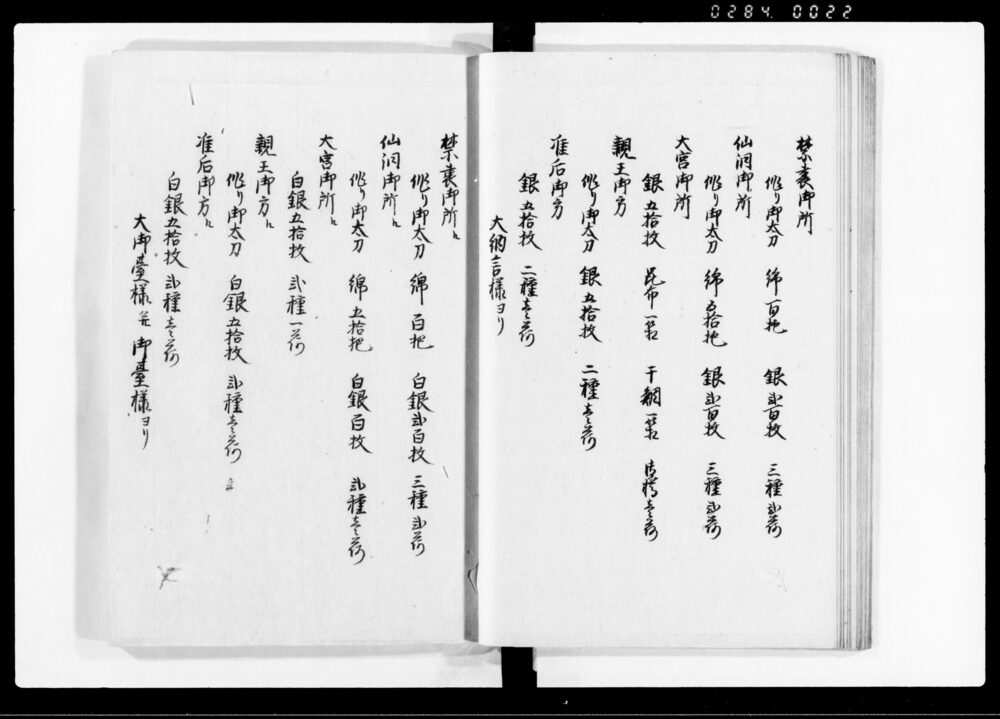 0284 0022
禁裏御所
作り御太刀 綿百把 銀弐百枚 三種弐荷
仙洞御所
作り御太刀 綿五拾把 銀弐百枚 三種弐荷
大宮御所
銀五拾枚 昆布一箱 干鯛一箱 御樽壱荷
親王御方
作り御太刀 銀五拾枚 二種壱荷
准后御方
銀五拾枚 二種壱荷
大納言様ヨリ
禁裏御所ヘ
作り御太刀 綿百把 白銀弐百枚 三種弐荷
仙洞御所ヘ
作り御太刀 綿五拾把 白銀百枚 弐種壱荷
大宮御所ヘ
白銀五拾枚 弐種一荷
親王御方ヘ
作り御太刀 白銀五拾枚 弐種壱荷
准后御方ヘ
白銀五拾枚 弐種壱荷
大御臺様并御臺様ヨリ